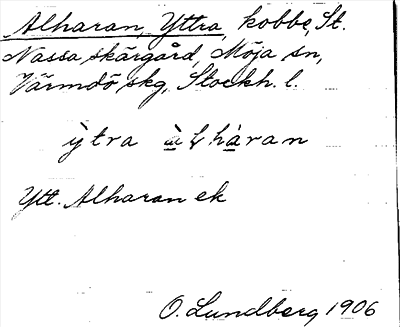 Alharan, Yttra, kobbe, St.
Nassa skärgård, Möja sn,
Värmdö skg, Stockh. l.
ỳtra hàran
Ytt. Alharan ek
O. Lundberg 1906